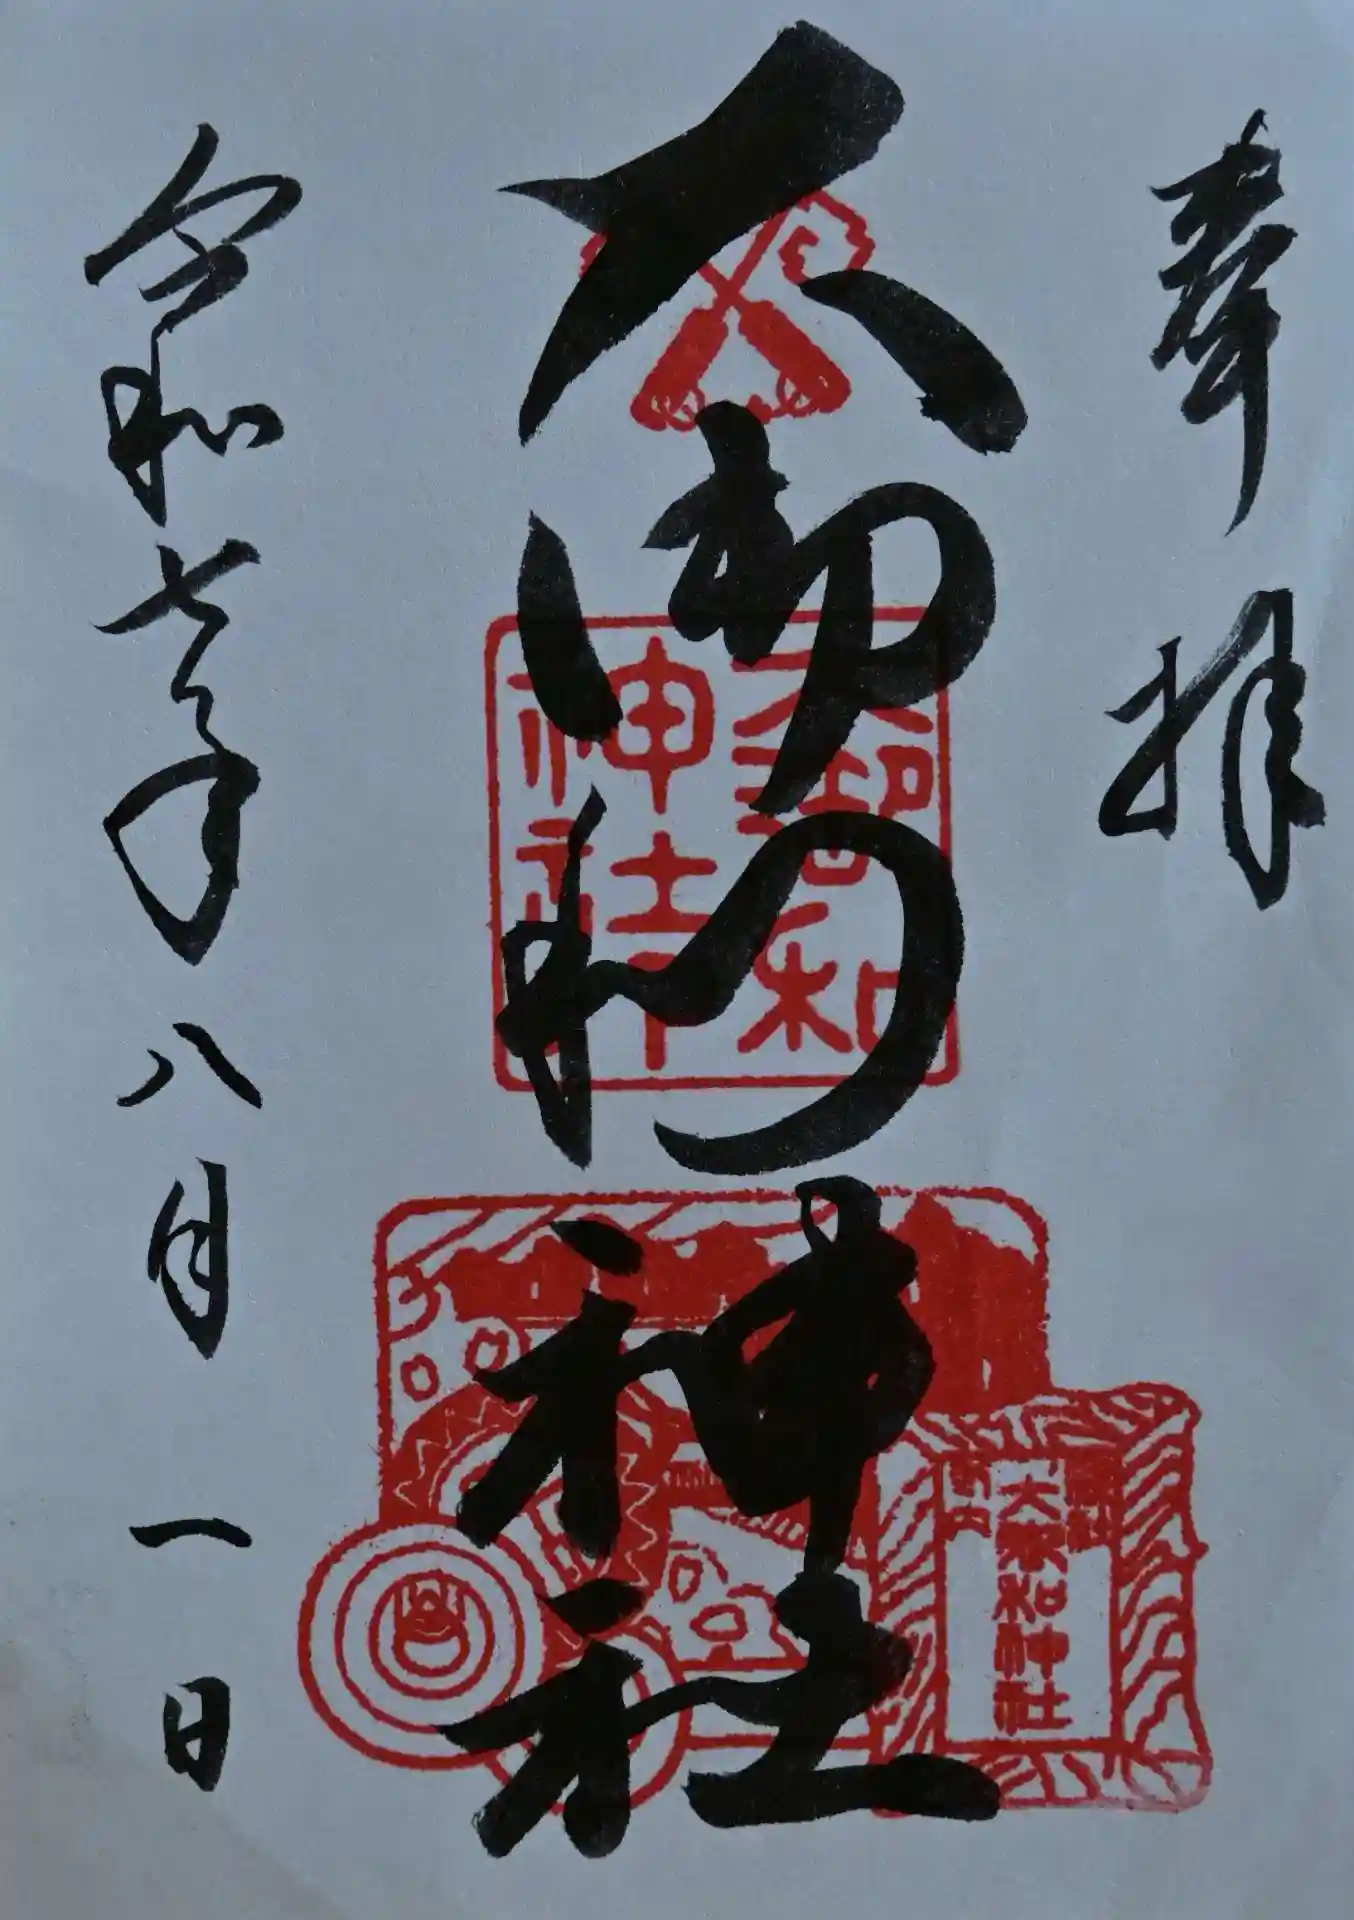 奉拝
大御和神社
令和七年八月一日
大御和
神社印
大御和神社